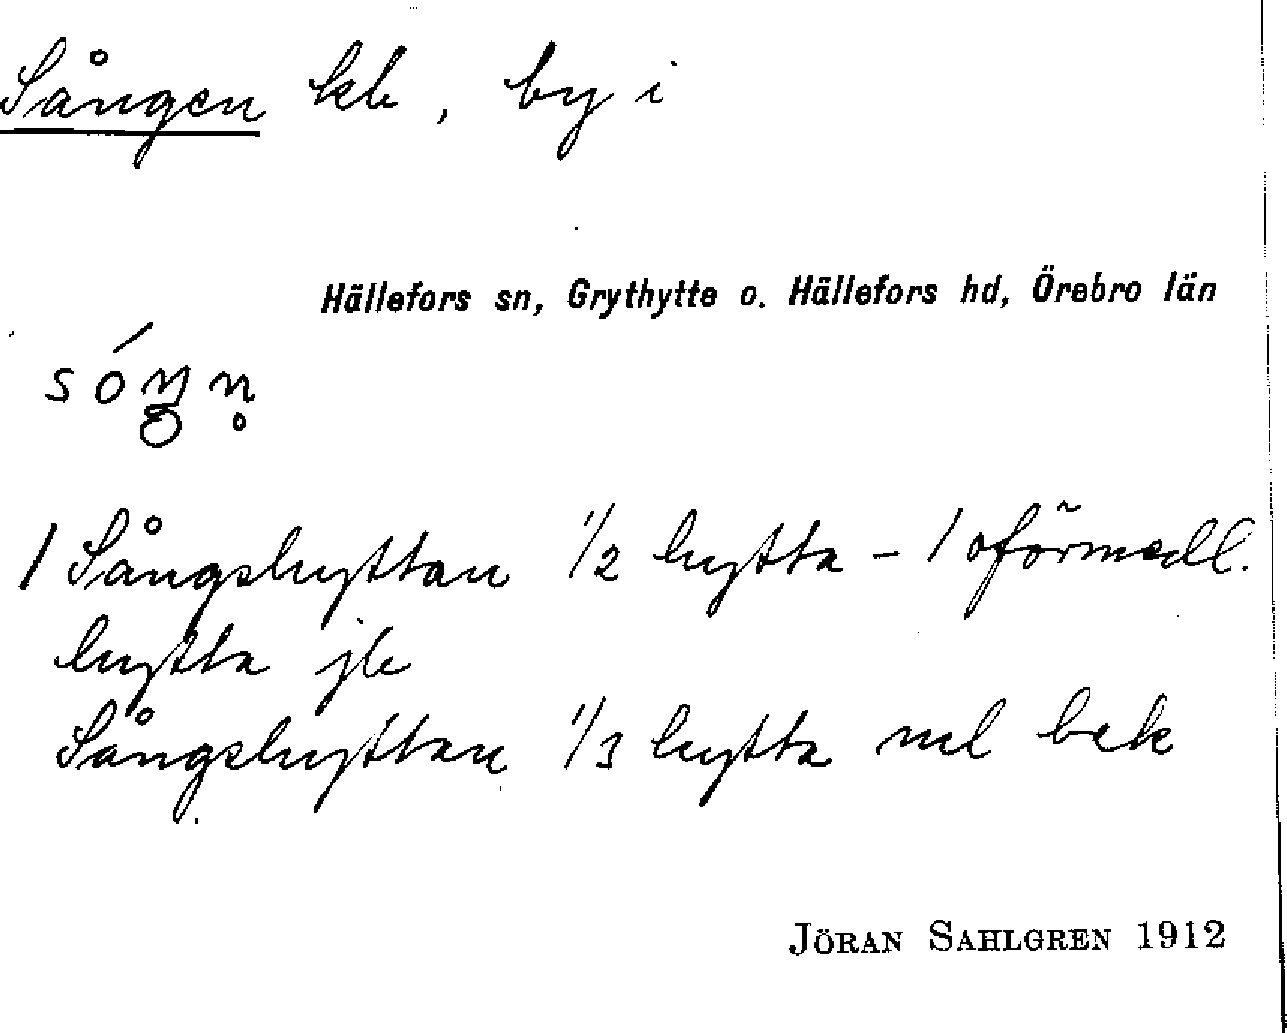 Sången kb, by i
Hällefors sn, Grythytte o. Hällefors hd, Örebro län
sóŋn̥
1 Sångshyttan 1/2 hytta - 1 oförmedl.
hytta jb
Sångshyttan 1/3 hytta ml bek
JÖRAN SAHLGREN 1912